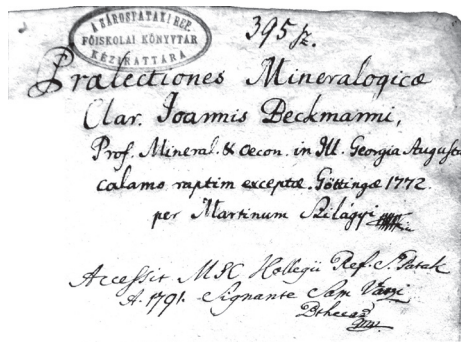 A SÁROSPATAKI REF.
FŐISKOLAI KÖNYVTÁR
KÉZIRATTÁRA
395 sz.
Prælectiones Mineralogicæ
Clar. Joannis Beckmanni,
Prof. Mineral. & œcon. in Ill. Georgia Augusta
calamo raptim exceptæ. Göttingæ 1772.
per Martinum Szilágyi
Accessit MSC Collegii Ref. S. Patak
A. 1791. Signante Sam